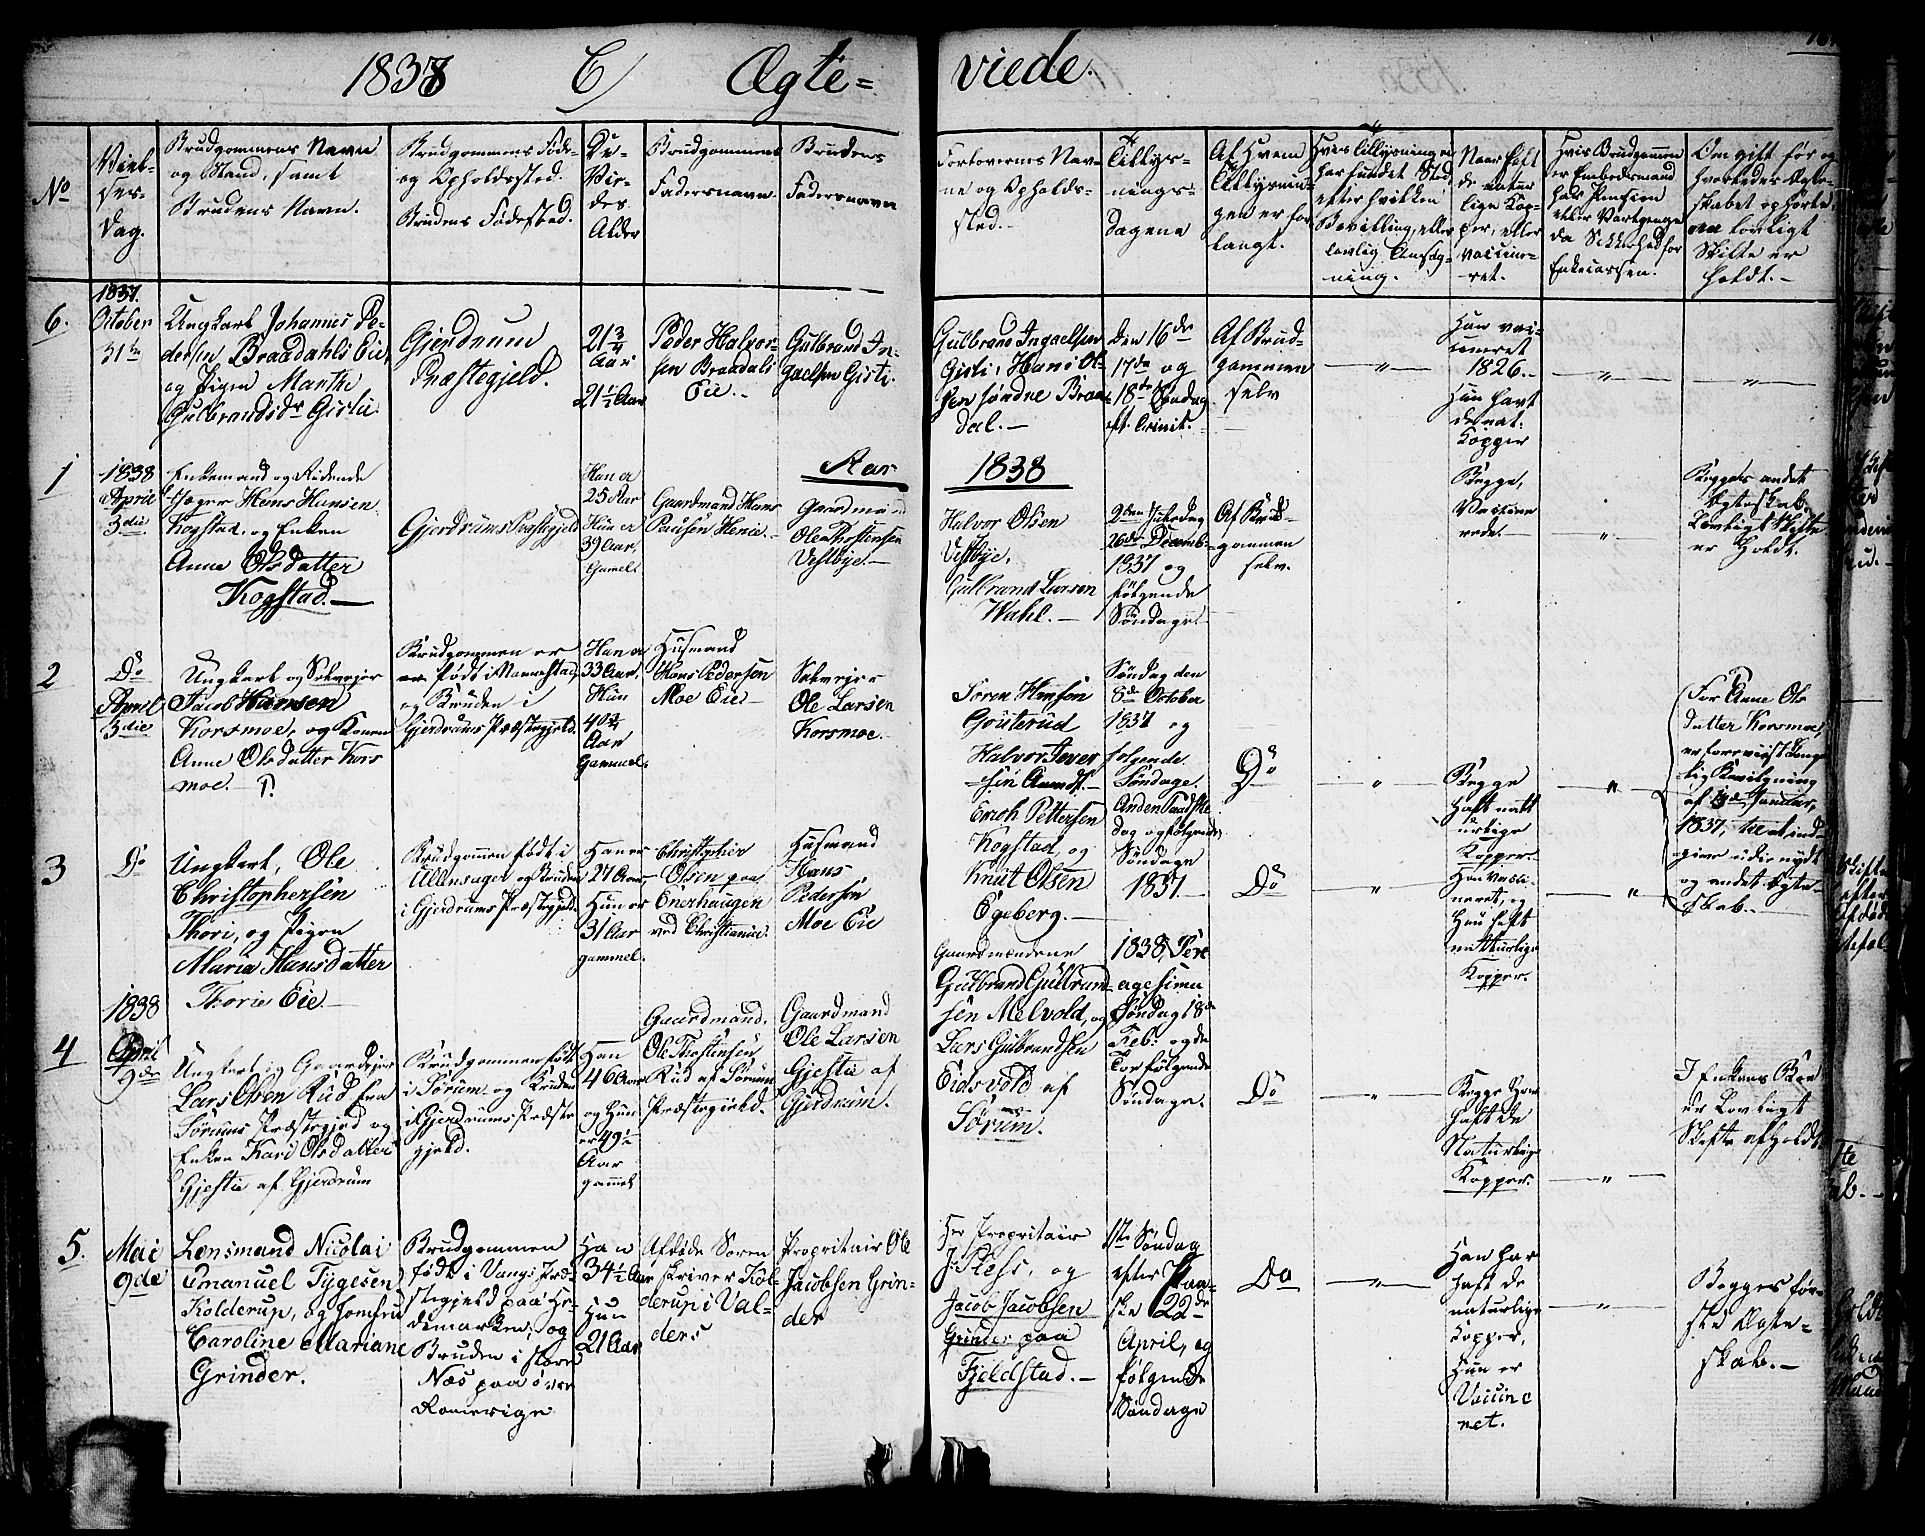 1838 C) Ægte=
viede.
No
Viel-
ses-
Dag.
Brudgommens Navn
og Stand, samt
Brudens Navn.
Brudgommens Føde-
og Opholdssted.
Brudens Fødested.
De-
Vie-
des
Alder
Brudgommens
Fadersnavn.
Brudens
Fadersnavn
Forlovernes Nav-
ne og Opholds-
sted.-
Tillys-
nings-
dagene
Af Hvem
Tillysnin-
gen er for-
langt.
Hvis Tillysning ei
har fundet Sted,
efter hvilken
Bevilling, eller
lovlig Ansøg-
ning.
Naar haft
de natur-
lige Kop-
per, eller
vaccine-
ret.
Hvis Brudgommen
er Embedsmand
har Pension
eller Vartpenge
da Sikkerhed for
Enkecassen.
Om gift før og
hvorledes Ægte-
skabet ophørte,
om lovligt
Skifte er
holdt.-
6.
1837.
October
31te
Ungkarl Johannes Pe-
dersen Braadahls Eie,
og Pigen Marthe
Gulbrandsdr Gistie
Gjerdrum
Præstegjeld.
21 3/4
Aar
21 1/2 Aar
Peder Halvor-
sen Braadals
Eie.-
Gulbrand In-
gaelsen Gisti.
Gulbrand Ingaelsen
Gisti, Hans Ol-
sen søndre Braa-
dal.-
Den 16de
17de og
18de Søndag
eft. Trinit.-
Af Brud-
gommen
selv
"
Han vac-
cineret
1826.-
Hun havt
de nat.
Kopper
"
"
Aar
1838
1
1838
April
3die
Enkemand og Ridende
Jæger Hans Hansen
Kogstad, og Enken
Anne Olsdatter
Kogstad.-
Gjerdrums Præstegjeld
Han er
25 Aar
Hun er
39 Aar,
Gamel.
Gaardmand Hans
Paulsen Henie.-
Gaardmand
Ole Thostensen
Vestbye.-
Halvor Olsen
Vestbye,
Gulbrand Larsen
Wahl.-
2den Juledag
26de Decemb-
1837 og
følgende
Søndage.-
Af Brud-
gommen
selv.
Begge,
Vaccine-
rede.
"
Begges andet
Ægteskab,
Lovligt Skifte
er Holdt.
2
Do
April
3die
Ungkarl og Selveier
Jacob Hansen
Korsmoe, og Konen
Anne Olsdatter Kors
moe.
Brudgommen er
født i Nannestad
og Bruden i
Gjerdrums Præstegjeld.
Han er
33 Aar,
Hun
40 3/4
Aar
Gammel.
Husmand
Hans Pedersen
Moe Eie
Selveier
Ole Larsen
Korsmoe.
Søren Hansen
Gouterud
Halvor Iver
sen Aamodt.-
Søndag den
8de October
1837 og
følgende
Søndage.
Do
"
Begge
Haft natt
urlige
Kopper.
"
(For Anne Ols
datter Korsmoe,
er foreviist Konge-
lig Bevilgning
af Januar,
1837, til at ind-
gaae udi nydt
og andet Ægte-
skab.-
3
Do
Ungkarl, Ole
Christophersen
Thori, og Pigen
Maria Hansdatter
Thorie Eie
Brudgommen født i
Ullensager og Bruden
i Gjerdrums Præstegjeld.
Han er
27 Aar,
Hun er
31 Aar
gammel.
Christopher
Olsen paa
Enerhaugen
ved Christiania.
Husmand
Hans
Pedersen
Moe Eie
Erich Pettersen
Kogstad, og
Knut Olsen
Egeberg.-
Anden
dag og følgende
Søndage
1837.
Do
"
Han vacci-
neret, og
Hun haft
natturlige
Kopper.
"
4
1838
April
9de
Ungkarl og Gaardejer
Lars Olsen Rud fra
Sørums Præstegjeld og
Enken Kari Olsdatter
Gjestie af Gjerdrum
Brudgommen født
i Sørum og Bruden
i Gjerdrums Præste
gjeld.
Han
46 Aar
og Hun
er 49 1/2
Aar
gammel
Gaardmand.
Ole Thostensen
Rud af Sørum
Præstegjeld.
Gaardmand
Ole Larsen
Gjestie af
Gjerdrum.
Gaardmendene
Gulbrand Gulbrand-
sen Melvold, og
Lars Gulbrandsen
Eidsvold af
Sørum.
1838,
agesima
Søndag 18de
Feb: og de
To følgende
Søndage.
Do
"
Begge Har
haft De
Naturlige
Kopper.
"
I Enkens Boe
er Lovligt
Skifte afholdt.
5.
Mai
9de
Lensmand Nicolai
Emanuel Tygesen
Kolderup, og Jomfru
Caroline Mariane
Grinder.
Brudgommen
født i Vangs Præ-
stegjeld paa He-
demarken, og
Bruden i store
Næs paa øvre
Romerige
Han
34 1/2 Aar
Hun
21 Aar
Afdøde Soren-
skriver Kol-
derup i Val-
ders
Propritair Ole
Jacobsen Grin-
der
Hr Propritair
J. Hess, og
Jacob Jacobsen
Grinder paa
Fjeldstad.-
1ste Søndag
efter Paa-
ske 22de
April, og
følgende
Søndage
Do
"
Han har
haft de
naturlige
Kopper,
Hun er
Vaccine
ret.
"
Begges før-
ste Ægte-
skab.-